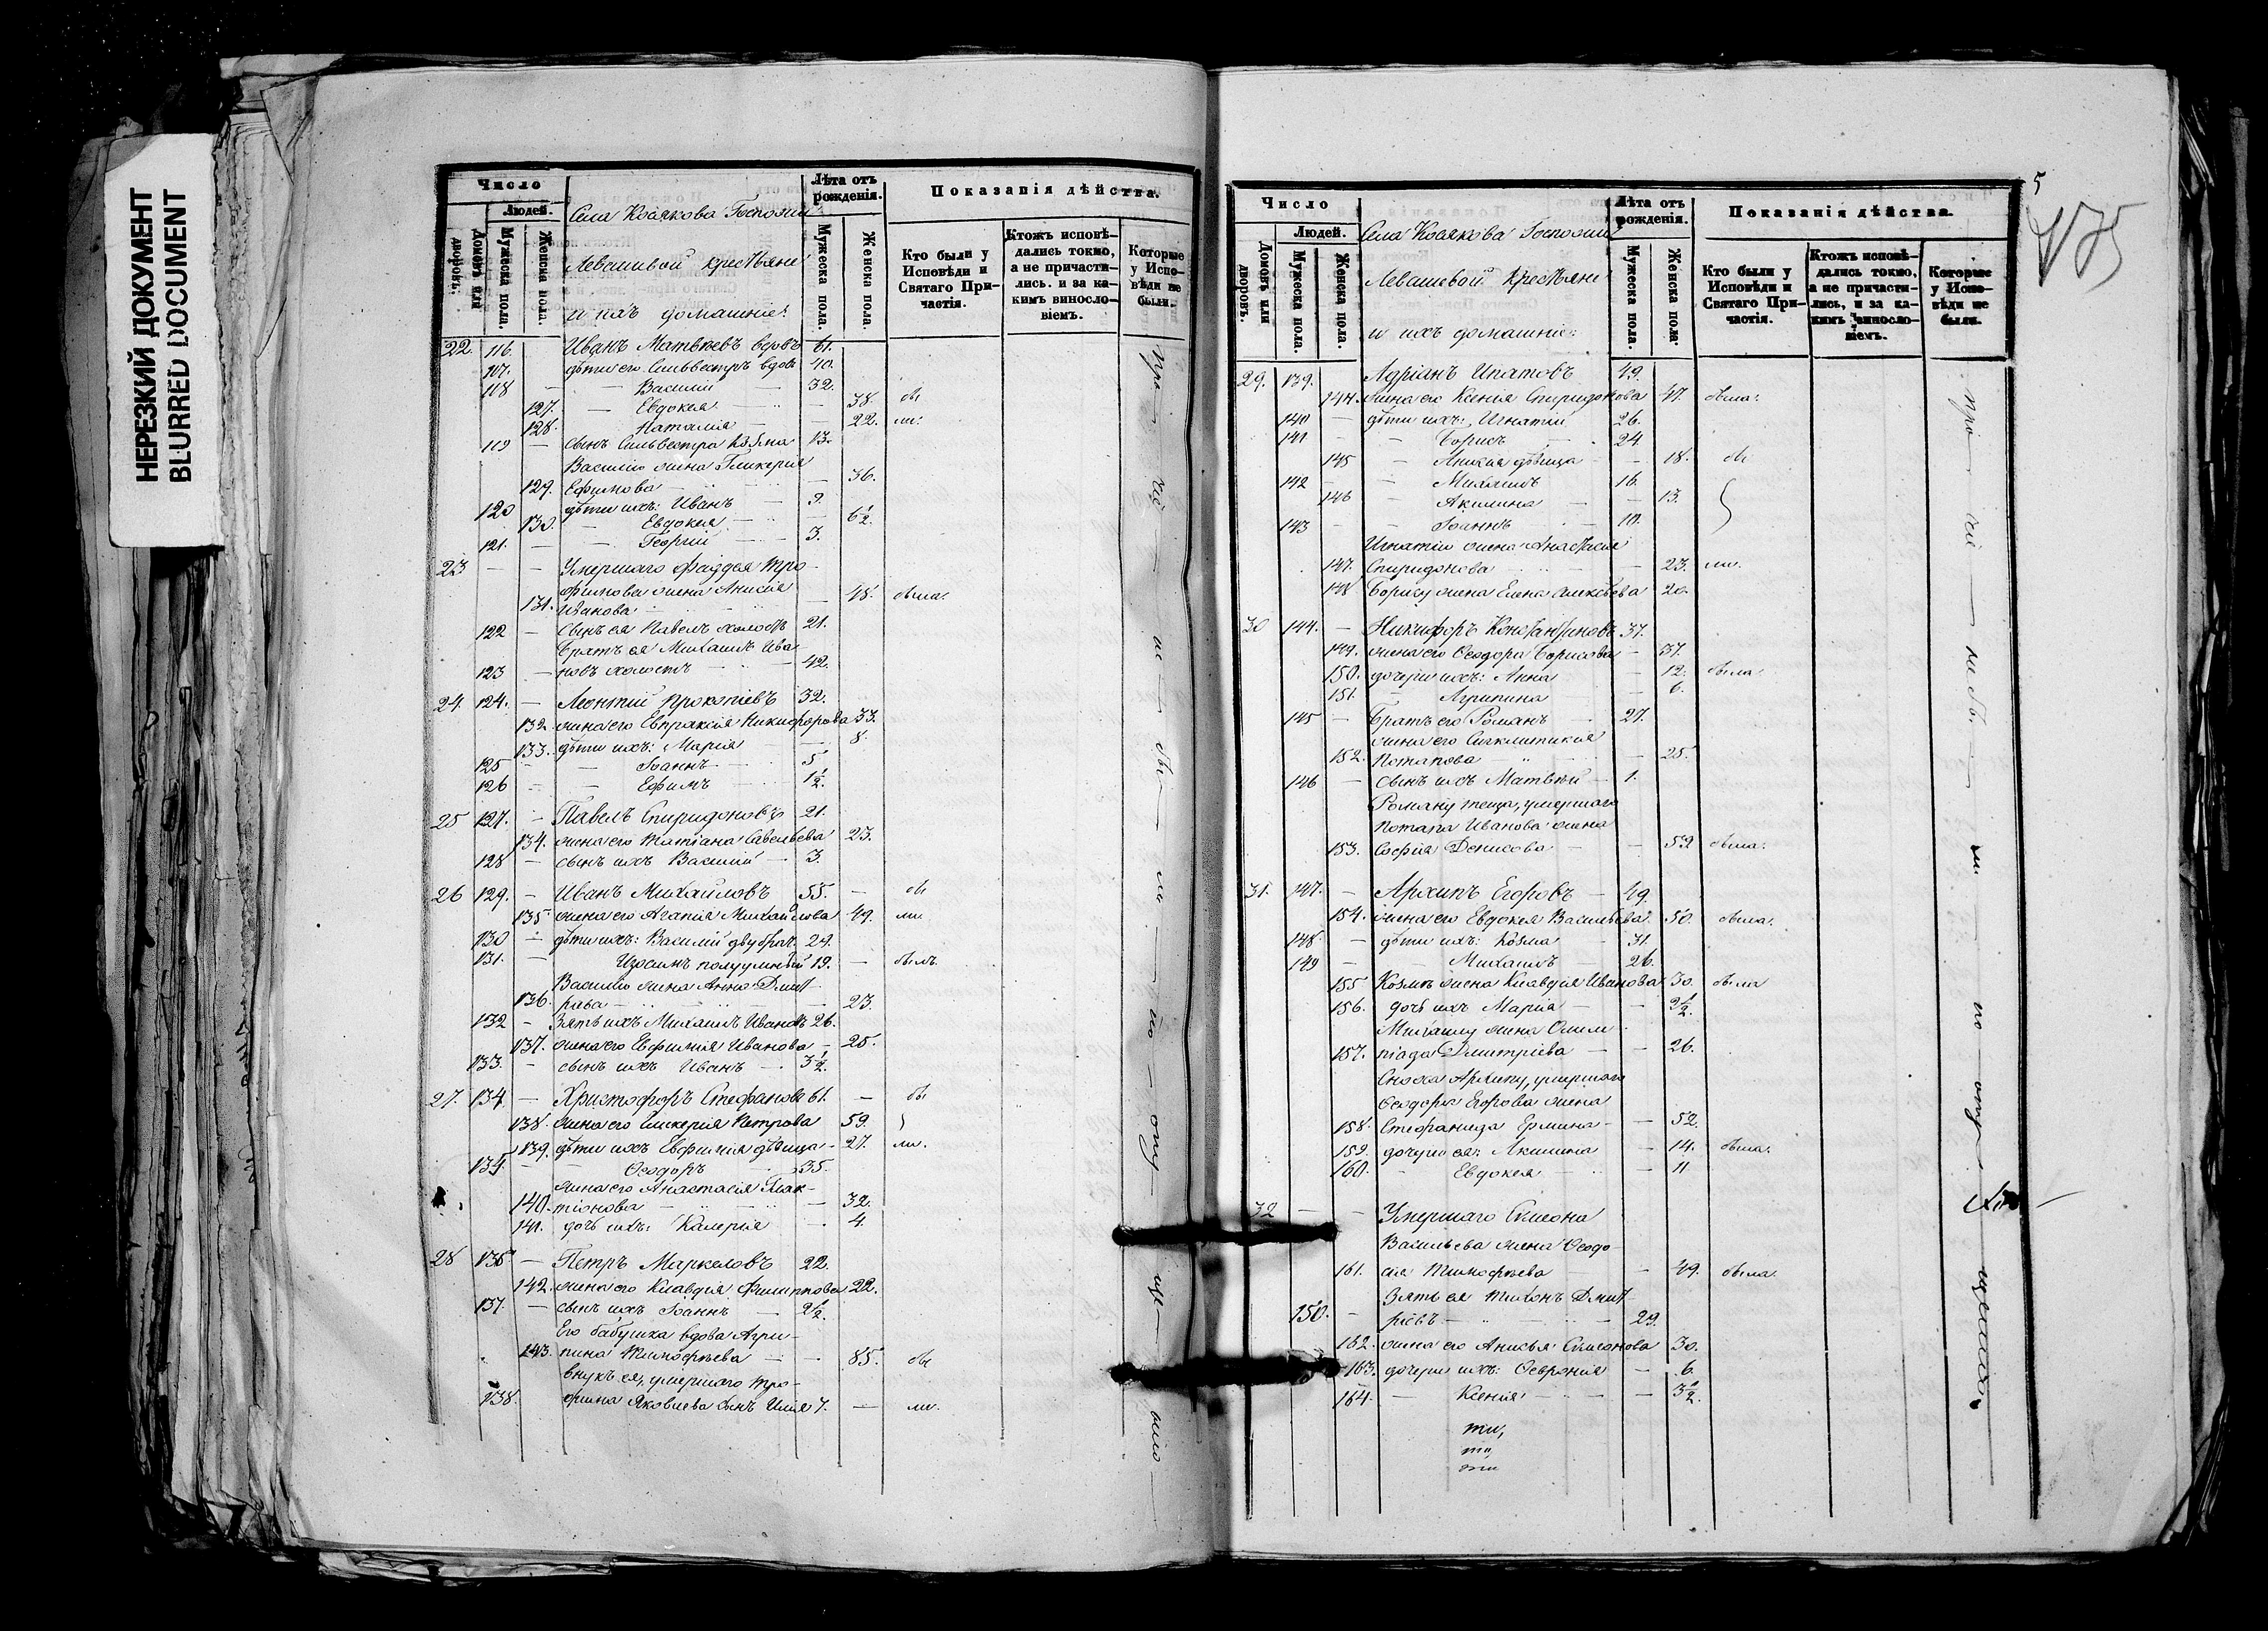 НЕРЕЗКИЙ ДОКУМЕНТ
BLURRED DOCUMENT
Число
Людей.
Домовъ или дворовъ.
Мужеска пола.
Женска пола.
Села Косякова Госпожи
Левашивой крестьяне
и ихъ домашніе:
Лѣта отъ рожденія.
Мужеска пола.
Женска пола.
Показанія дѣйства.
Кто были у Исповѣди и Святаго При-
частія.
Ктожъ исповѣ-
дались токмо,
а не причасти-
лись. и за ка-
кимъ винословіемъ.
Которые
у Испо-
вѣди не
были.
22. 116. Иванъ Матвѣевъ вдовъ 61.
117. дѣти его Сильвестръ вдовъ 40.
118 — — Василій 32.
127. — Евдокея — 38. бы
128. Наталія — 22. ли:
119 — сынъ Сильвестра Козма 13.
Василію жена Гликерія
129. Ефимова — 36.
120 дѣти ихъ: Иванъ — 9.
130. — Евдокея — 6½.
121. — — Георгій — 3.
23 — — Умершаго Фаддея Тро-
фимова жена Анисія
131. Иванова — 48. была.
122 — сынъ ея Павелъ холостъ 21.
Братъ ея Михаилъ Ива
123 — новъ холостъ — 42.
24. 124. — Леонтій Прокопіевъ 32.
132. жена его Евпраксія Никифорова 33.
133. дѣти ихъ: Марія — 8.
125 — — Іоаннъ — 5
126 — — Ефимъ — 1½.
25 127. — Павелъ Спиридоновъ 21.
134. жена его Татіана Савельева 23.
128 — сынъ ихъ Василій — 3.
26 129. — Иванъ Михайловъ 55. — бы
135 жена его Агапія Михайлова 49. ли.
130 — дѣти ихъ: Василій двубрач. 24.
131. — Изосимъ полуумный 19. — былъ.
Василію жена Анна Дмит-
136. ріева — 23.
132 — Зять ихъ Михаилъ Ивановъ 26.
137. жена его Евфимія Иванова — 25.
133. — сынъ ихъ Иванъ — 3½.
27. 134 — Христофоръ Стефановъ 61. — бы
138. жена его Гликерія Петрова 59.
139. дѣти ихъ Евфимія дѣвица — 27. ли.
135 — — Ѳеодоръ 35.
жена его Анастасія Гала-
140. тіонова — 32.
141. дочь ихъ: Калерія — 4.
28 136 — Петръ Маркеловъ 22.
142. жена его Клавдія Филиппова 22.
137. — сынъ ихъ Іоаннъ — 2½.
Его бабушка вдова Агри-
143. пина Тимофѣева — — 85. бы
внукъ ея, умершаго Тро-
138. фима Яковлева сынъ Илія 7. — ли.
при чи — не — бы — ли — по — опу — ще — нію
5
Число
Людей.
Домовъ или дворовъ.
Мужеска пола.
Женска пола.
Села Косякова Госпожи
Левашевой Крестьяне
и ихъ домашніе:
Лѣта отъ рожденія.
Мужеска пола.
Женска пола.
Показанія дѣйства.
Кто были у Исповѣди и Святаго При-
частія.
Ктожъ исповѣ-
дались токмо,
а не причасти-
лись, и за ка-
кимъ винословіемъ.
Которые
у Испо-
вѣди не
были.
29. 139. Адріанъ Ипатовъ 49.
144. жена его Ксенія Спиридонова 47. была.
140 — дѣти ихъ: Игнатій 26.
141 — — Борисъ 24
145 — Анисія дѣвица — 18. бы
142 — — Михаилъ 16.
146 — Акилина — 13.
143 — — Іоаннъ — 10.
Игнатію жена Анастасія
147. Спиридонова — 23. ли.
148 Борису жена Елена Алексѣева 20.
30 144. — Никифоръ Константиновъ 37.
149. жена его Ѳеодора Борисова — 37.
150. дочери ихъ: Анна — 12. была
151. — Агрипина — 6.
145 — Братъ его Романъ 27.
жена его Синклитикія
152. Потапова — 25.
146 — сынъ ихъ Матвѣй — 1.
Роману теща, умершаго
Потапа Иванова жена
153. Софія Денисова — 59 была.
31. 147. — Архипъ Егоровъ — 49.
154. жена его Евдокея Васильева 50. была.
148. — дѣти ихъ: Козма 31.
149 — — Михаилъ 26.
155 Козмѣ жена Клавдія Иванова 30. была
156. дочь ихъ Марія — 2½.
Михаилу жена Олим-
157. піада Дмитріева — 26.
Сноха Архипу, умершаго
Ѳеодора Егорова жена
158. Стефанида Ермина — 52.
159. дочери ея: Акилина — 14. была.
160. — Евдокея — 11
32 — — Умершаго Симеона
Васильева жена Ѳеодо-
161. сія Тимофѣева — 49. была.
Зять ея Тихонъ Дмит
150. — ріевъ — 29.
162. жена его Анисья Симеонова 30.
163. дочери ихъ: Ѳевронія — 6.
164. — Ксенія — 3½.